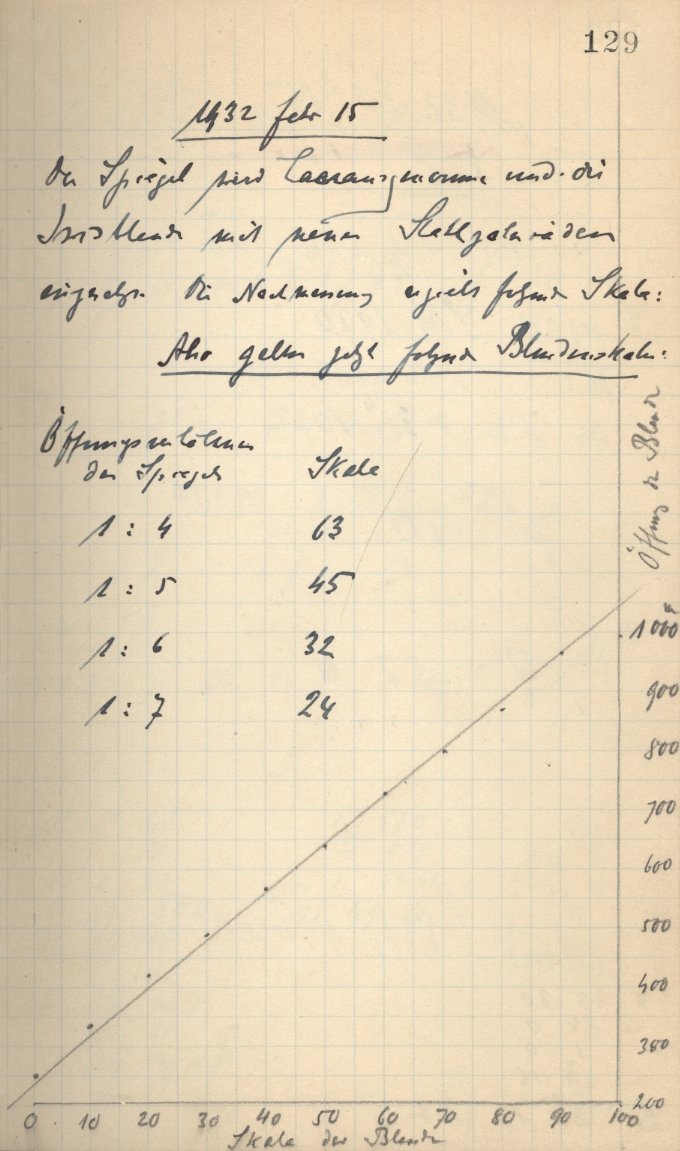 129
1932 Febr 15
Der Spiegel wird herausgenommen und die
Irisblende mit neuen Stahlzahnrädern
eingesetzt. Die Nachmessung ergiebt folgende Skala:
Also gelten jetzt folgende Blendenskala:
Öffnungsverhältnis
des Spiegels Skala
1 : 4 63
1 : 5 45
1 : 6 32
1 : 7 24
Öffnung der Blende
1000
900
800
700
600
500
400
300
200
0 10 20 30 40 50 60 70 80 90 100
Skala der Blende